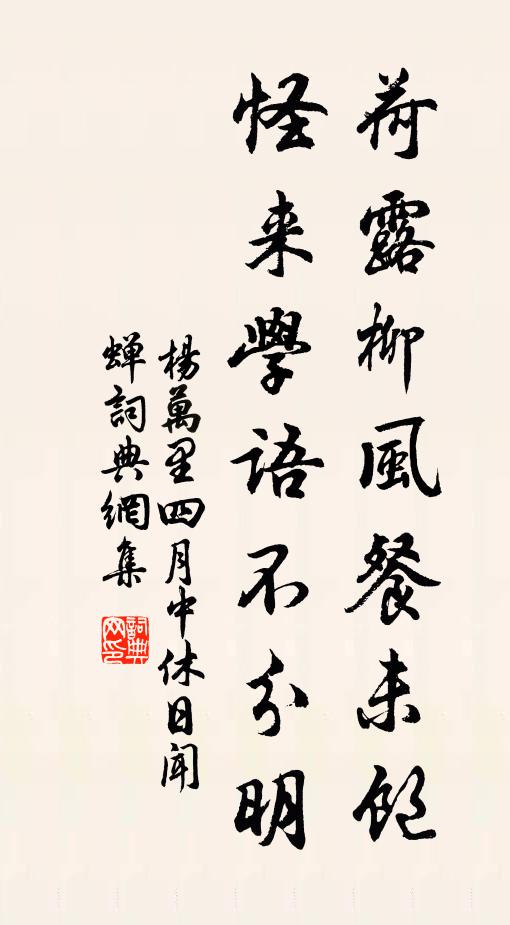 荷露柳風餐未飽
怪来學語不分明
楊萬里四月中休日聞
蟬詞典網集
詞典
网印